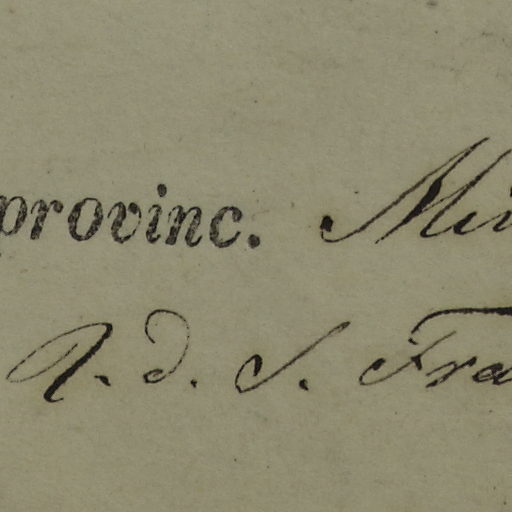 provinc. Min
A. d. S. Fra